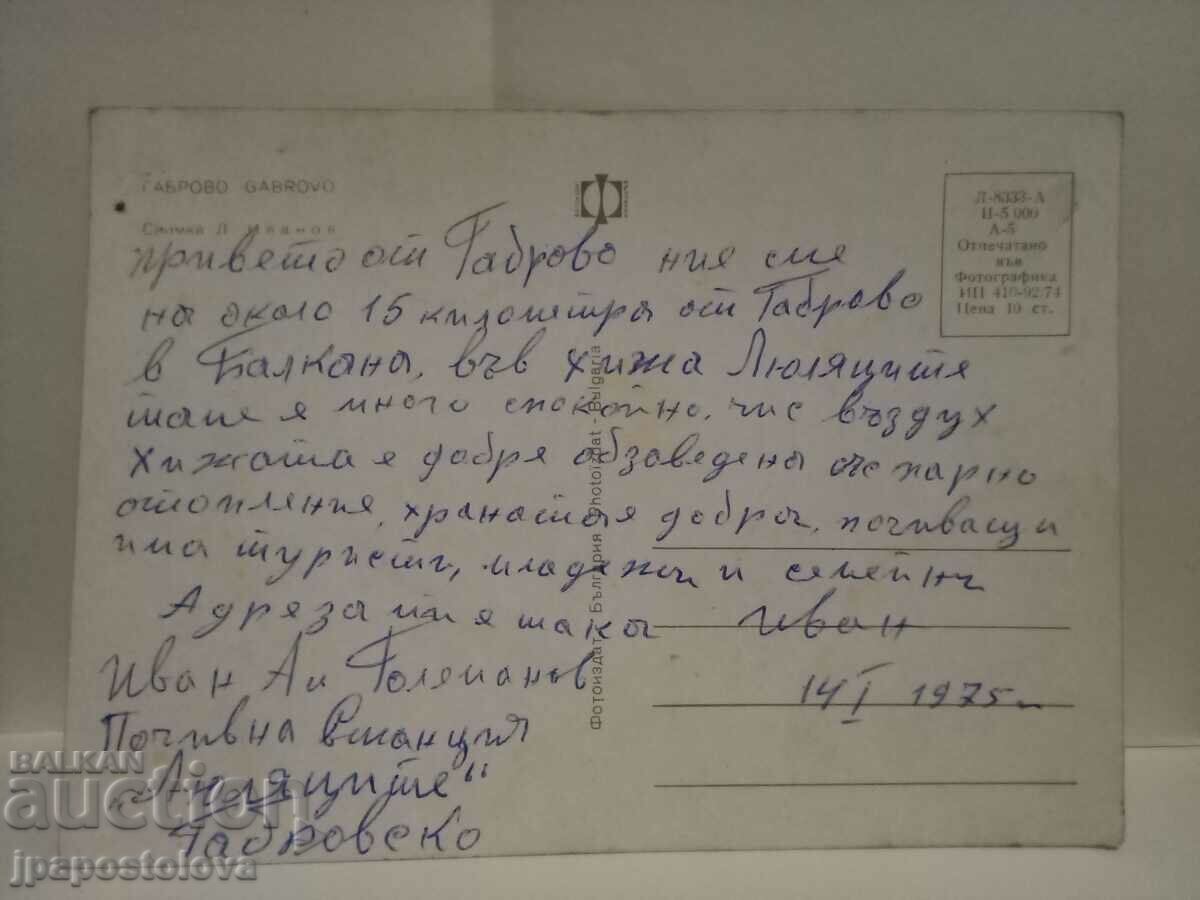 ГАБРОВО GABROVO
Снимка Л. Иванов
Д-8333-А
Ц-5 000
А-5
Отпечатано
във
Фотографика
ИП 410-92/74
Цена 10 ст.
привето от Габрово ние сме
на около 15 километра от Габрово
в Балкана, във хижа Люляците
тапе е много спокойно, чис въздух
Хижата е добре обзаведена със парно
отопление, храната е добра, почиващи
има туристи, младежи и семейни
Адреза ми е такъ Иван
14 I 1975г.
Иван Ан Голяманов
Почивна станция
„Люляците"
Габровско
Фотоиздат България Photoizdat - Bulgaria
BALKAN
auction
jpapostolova